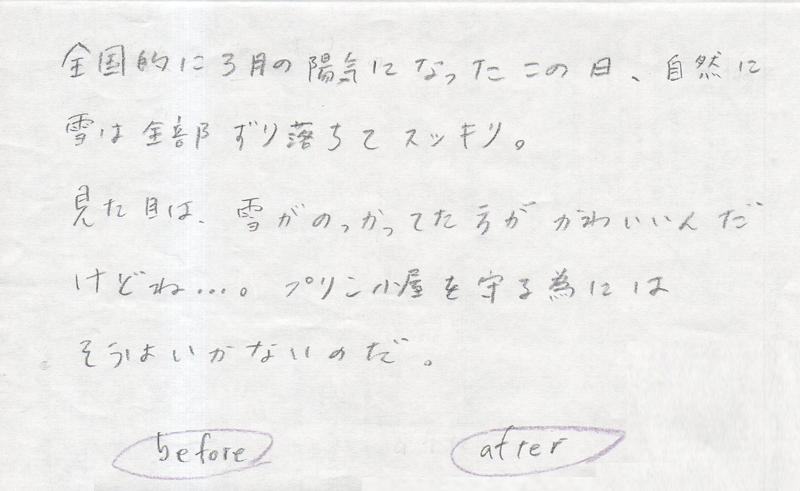 全国的に3月の陽気になったこの日、自然に
雪は全部ずり落ちてスッキリ。
見た目は、雪がのっかってた方がかわいいんだ
けどね…。プリン小屋を守る為には
そうはいかないのだ。
before after